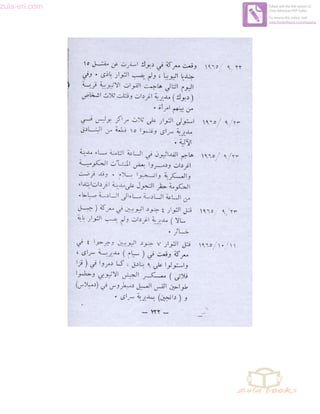 zula-eri.com
Edited with the trial version of
Foxit Advanced PDF Editor
To remove this notice, visit:
www.foxitsoftware.com/shopping
٢٢/ ٩ /١٩٦٥ وقعت معركة في دبوك اسفرت عن مقتل ١٥
جنديا اثيوبيا ، ولم يصب الثوار باذى ٠ وفي
اليوم التالي هاجمت القوات الاثيوبية قرية
( دبوك ) مديرية اغردات وقتلت ثلاث اشخاص
من بينهم امرأة ٠
٢٣/ ٩ /١٩٦٥ استولى الثوار على ثلاث مراكز بوليس في
مديرية سراى وغنموا ١٥ قطعة من البنادق
الآلية ٠
٢٣/ ٩ /١٩٦٥ هاجم الفدائيون في الساعة الثامنة مساء مدينة
اغردات ودمروا بعض المنشآت الحكومية
والعسكرية وانسحبوا بسلام ٠ وقد فرضت
الحكومة حظر التجول على مدينة اغردات ابتداء
من الساعة السادسة مساء الى السادسة صباحا ٠
٢٣/ ٩ /١٩٦٥ قتل الثوار ٤ جنود اثيوبيين في معركة ( جبل
سالا ) مديرية اغردات ولم يصب الثوار باية
خسائر ٠
١١/١٠/١٩٦٥ قتل الثوار ٧ جنود اثيوبيين وجرحوا ٤ في
معركة وقعت في ( سيام ) مديرية سراى ،
واستولوا على ٩ بنادق ، كما دمروا في ( قزا
فلاتى ) معسكر الجيش الاثيوبي وحطموا
طواحين القس العميل دمطروس في (دمبلاس)
و ( دانجين ) بمديرية سراى ٠
— ٦٢٢ —
zula books